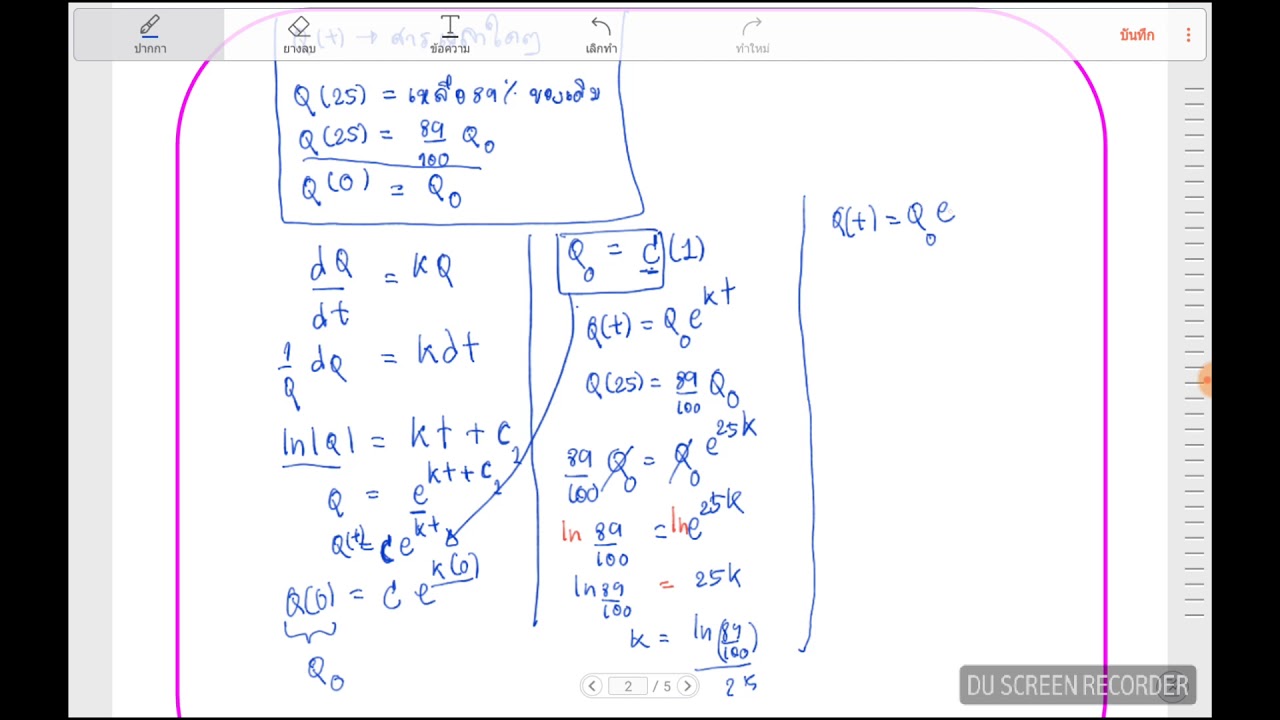 ปากกา
ยางลบ
ข้อความ
เลิกทำ
ทำใหม่
บันทึก
(t) → สาร
Q(25) = เหลือ 89% ของเดิม
Q(25) = 89/100 Q₀
Q(0) = Q₀
dQ/dt = kQ
1/Q dQ = kdt
ln|Q| = kt + C₂
Q = e^(kt+C₂)
Q(t) = Ce^(kt)
Q(0) = C e^(k(0))
Q₀
Q₀ = C(1)
Q(t) = Q₀e^(kt)
Q(25) = 89/100 Q₀
89/100 Q₀ = Q₀ e^(25k)
ln 89/100 = ln e^(25k)
ln 89/100 = 25k
k = ln(89/100)/25
Q(t) = Q₀e
2 / 5
DU SCREEN RECORDER